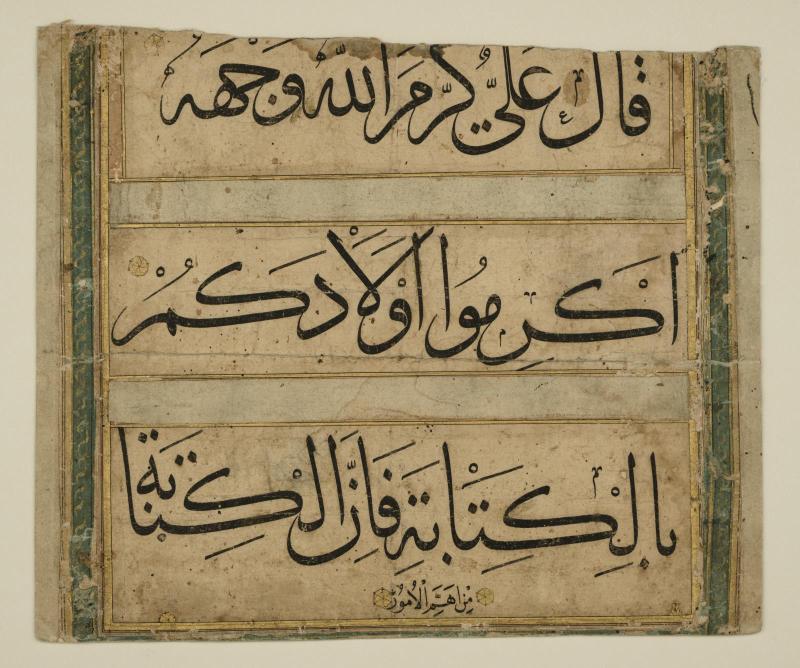 قَالَ عَلِيٌّ كَرَّمَ اللّٰهُ وَجْهَهُ
اَكْرِمُوا اَوْلَادَكُمْ
بِالْكِتَابَةِ فَاِنَّ الْكِتَابَةَ
مِنْ اَهَمِّ الْاُمُورِ